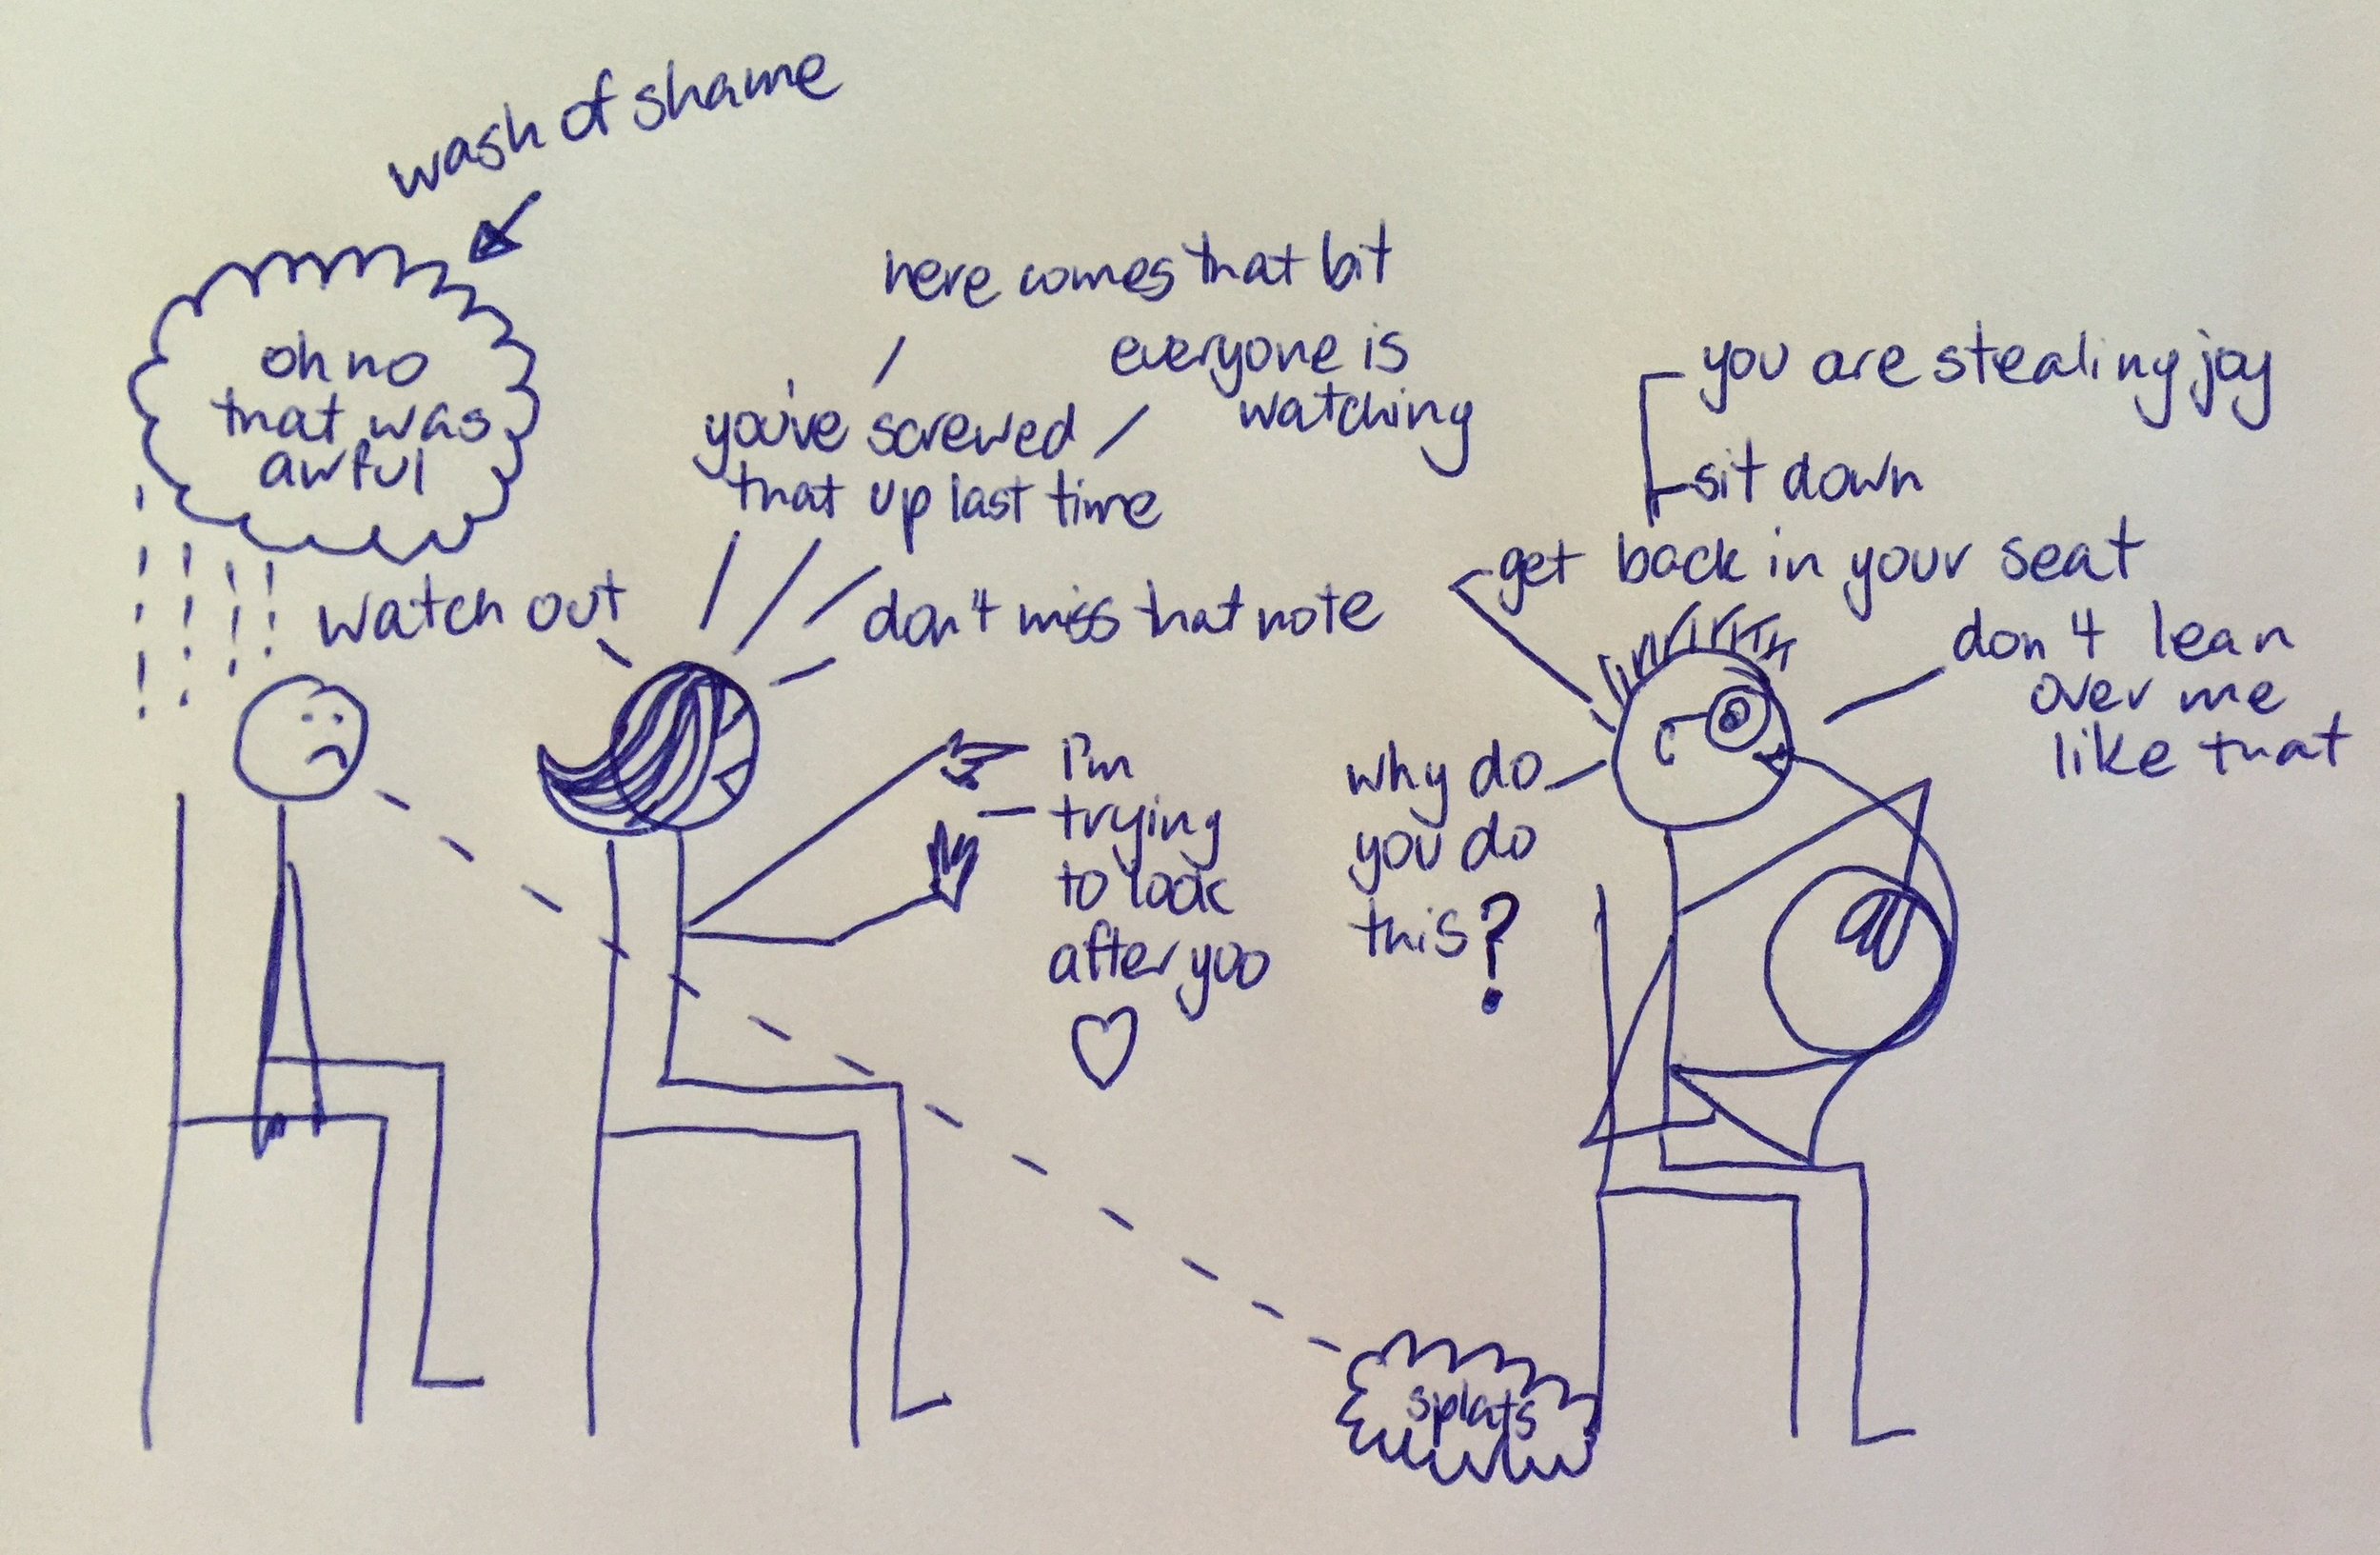 wash of shame
oh no
that was
awful
here comes that bit
everyone is
watching
you've screwed
that up last time
watch out
don't miss that note
I'm
trying
to look
after you
you are stealing joy
sit down
get back in your seat
don't lean
over me
like that
why do
you do
this?
splats